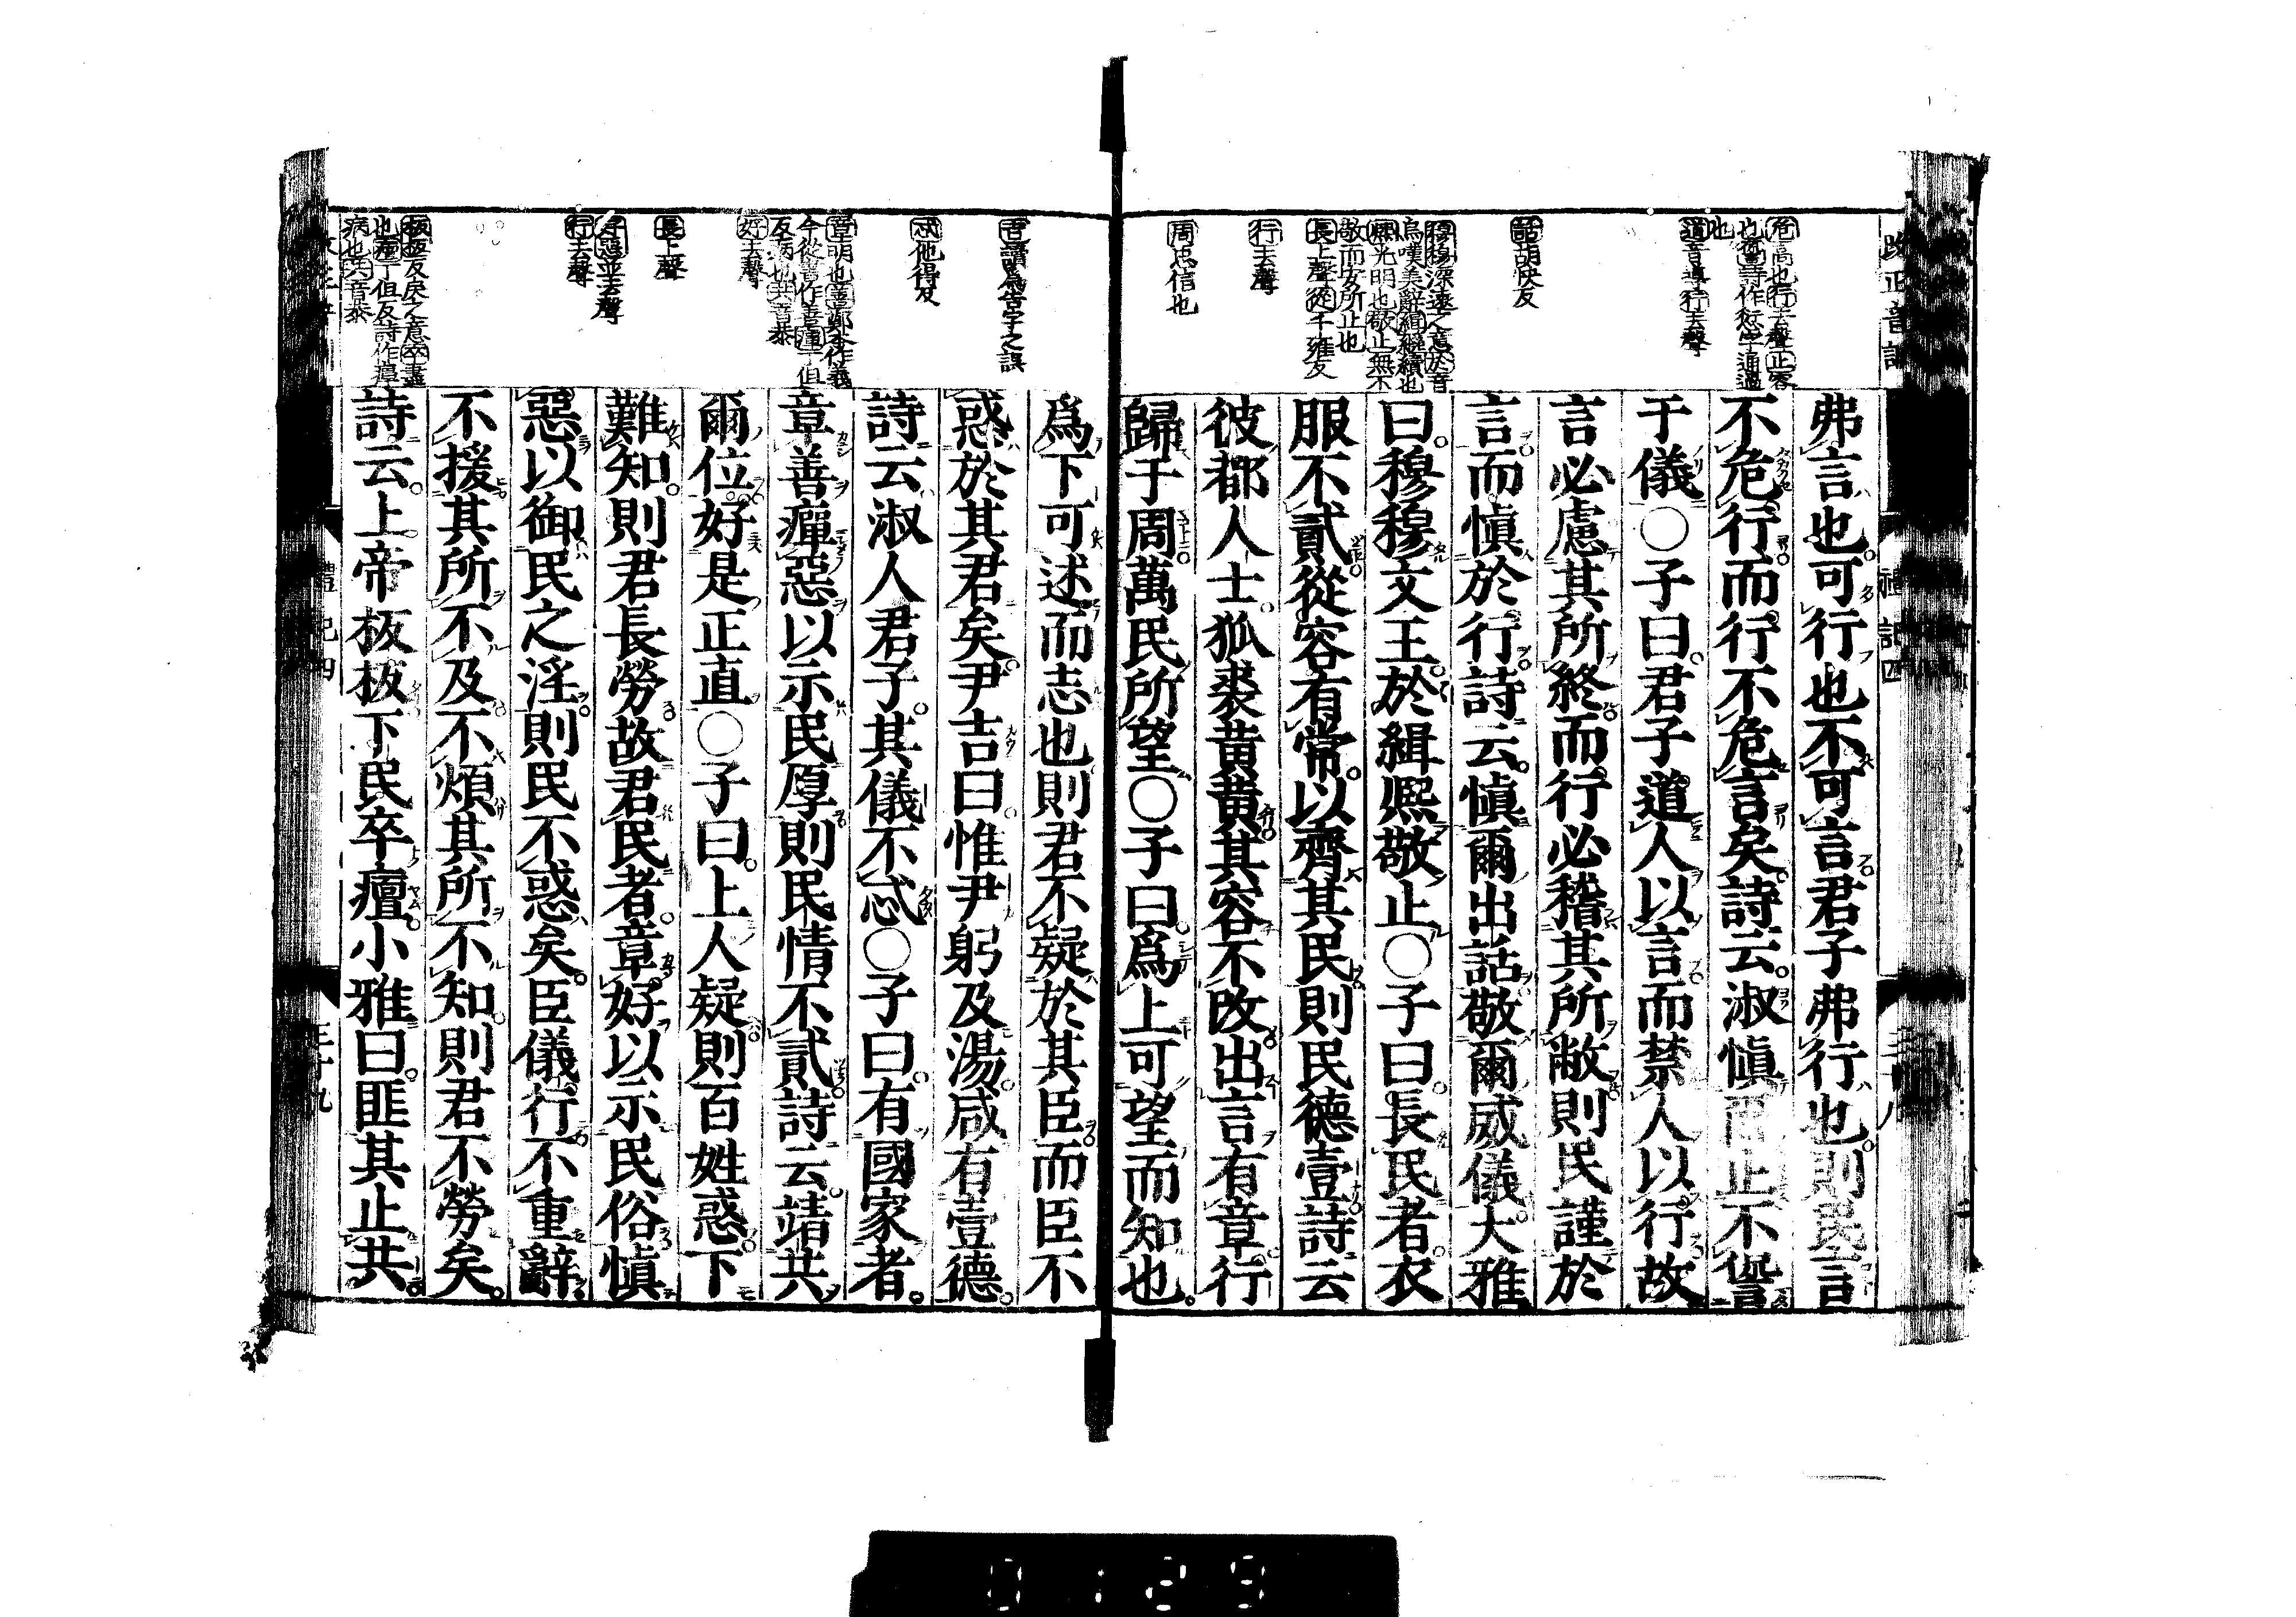 改正音訓
禮記四
三十八
危高也行去聲正容
也諐詩作愆字通過
也
道音導行去聲
話胡快反
穆穆深遠之意於音
烏嘆美辭緝繼續也
熙光明也敬止無不
敬而安所止也
長上聲從千雍反
行去聲
周忠信也
弗言也可行也不可言君子弗行也則民言
不危行而行不危言矣詩云淑愼爾止不諐
于儀○子曰君子道人以言而禁人以行故
言必慮其所終而行必稽其所敝則民謹於
言而愼於行詩云愼爾出話敬爾威儀大雅
曰穆穆文王於緝熙敬止○子曰長民者衣
服不貳從容有常以齊其民則民德壹詩云
彼都人士狐裘黃黃其容不改出言有章行
歸于周萬民所望○子曰爲上可望而知也
吉讀爲告字之誤
忒他得反
章明也善鄭本作義
今從書作善癉丁但
反病也共音恭
好去聲
長上聲
好惡並去聲
行去聲
板板反戾之意卒盡
也癉丁但反詩作瘅
病也共音恭
爲下可述而志也則君不疑於其臣而臣不
惑於其君矣尹吉曰惟尹躬及湯咸有壹德
詩云淑人君子其儀不忒○子曰有國家者
章善癉惡以示民厚則民情不貳詩云靖共
爾位好是正直○子曰上人疑則百姓惑下
難知則君長勞故君民者章好以示民俗愼
惡以御民之淫則民不惑矣臣儀行不重辭
不援其所不及不煩其所不知則君不勞矣
詩云上帝板板下民卒癉小雅曰匪其止共
禮記四
三十九
0129